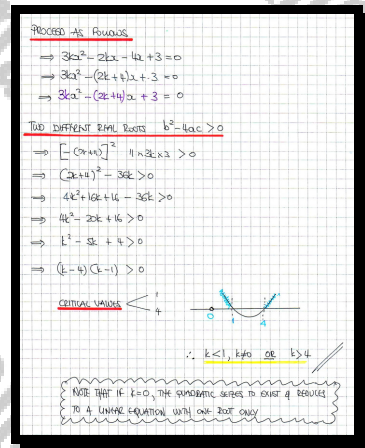 PROCEED AS FOLLOWS
⇒ 3kx² − 2kx − 4x + 3 = 0
⇒ 3kx² − (2k+4)x + 3 = 0
⇒ 3kx² − (2k+4)x + 3 = 0
TWO DIFFERENT REAL ROOTS b² − 4ac > 0
⇒ [−(2k+4)]² − 4×3k×3 > 0
⇒ (2k+4)² − 36k > 0
⇒ 4k² + 16k + 16 − 36k > 0
⇒ 4k² − 20k + 16 > 0
⇒ k² − 5k + 4 > 0
⇒ (k − 4)(k − 1) > 0
CRITICAL VALUES < 1 4
0 1 4
∴ k < 1, k ≠ 0 OR k > 4
NOTE THAT IF k = 0, THE QUADRATIC SEIZES TO EXIST & REDUCES
TO A LINEAR EQUATION WITH ONE ROOT ONLY